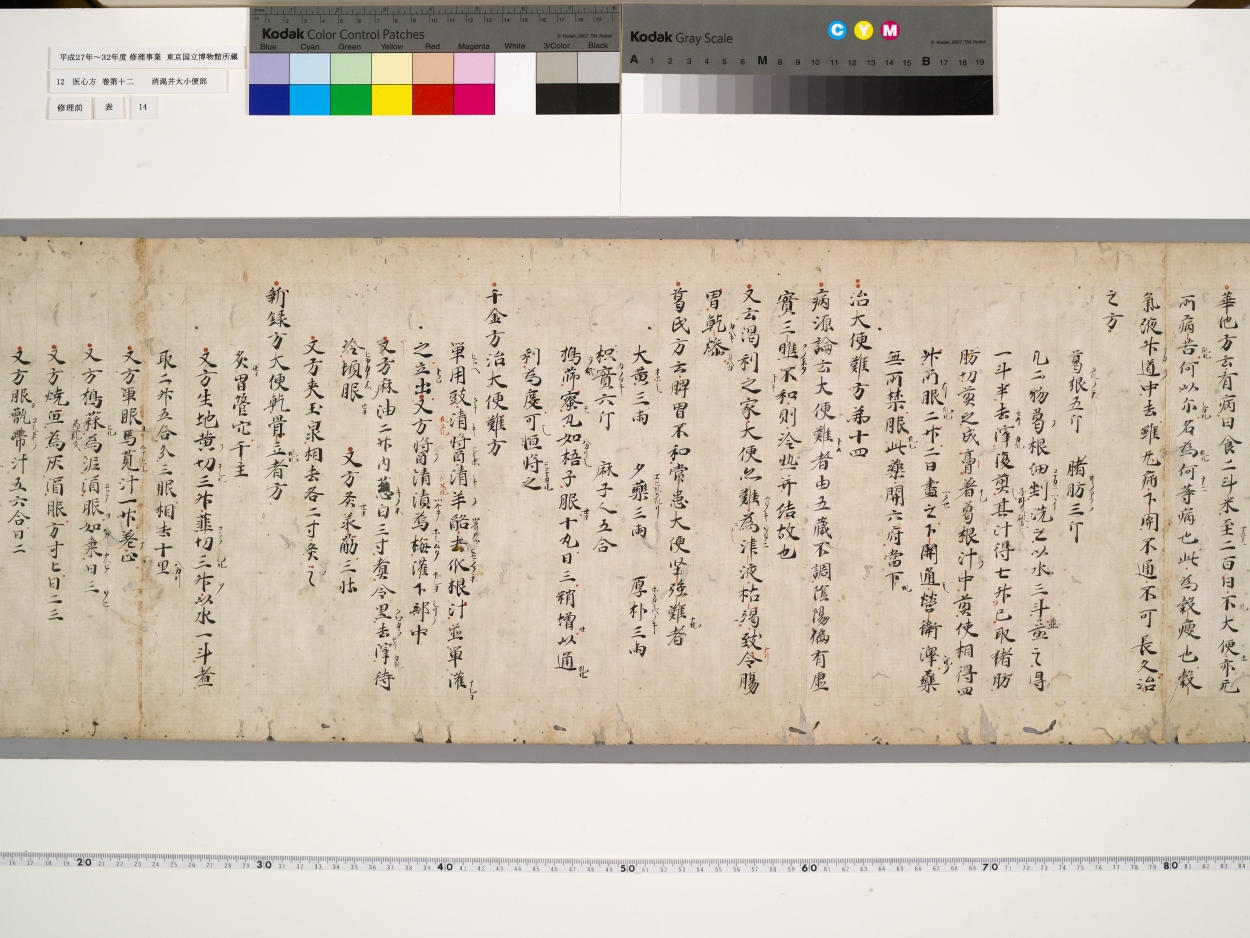 平成27年～32年度 修理事業 東京国立博物館所蔵
12 医心方 巻第十二 消渇并大小便部
修理前 表 14
Kodak Color Control Patches
© Kodak, 2007 TM: Kodak
Blue Cyan Green Yellow Red Magenta White 3/Color Black
Kodak Gray Scale
C Y M
© Kodak, 2007 TM: Kodak
A 1 2 3 4 5 6 M 8 9 10 11 12 13 14 15 B 17 18 19
華他方云有病日食二斗米至二百日不大便亦无
所病苦何以尓名為何等病也此為穀瘦也穀
氣液斗道中去雖无病下開不通不可長久治
之方
葛根五斤 猪肪三斤
凡二物葛根細剉洗之以水三斗煮之得
一斗半去滓復煎其汁得七升已取猪肪
肪切煎之成膏著葛根汁中煎使相得四
升所服二升二日盡之下開通營衛澤藥
無所禁服此藥開六府當下
治大便難方第十四
病源論云大便難者由五藏不調陰陽偏有虚
實三膲不和則冷熱并結故也
又云渴利之家大便亦難為津液枯竭致令腸
胃乾燥
葛氏方云脾胃不和常患大便堅強難者
大黄三兩 夕藥三兩 厚朴三兩
枳實六斤 麻子人五合
搗篩蜜丸如梧子服十丸日三稍增以通
利為度可恒將之
千金方治大便難方
單用豉清醬清羊酪土瓜根汁並單灌
之立出 又方醬清漬為梅灌下部中
又方麻油二升内葱白三寸煮令黒去滓待
冷頓服 又方灸承筋三壮
又方夾玉泉相去各二寸灸之
新録方大便乾骨立者方
灸胃管穴千主
又方生地黄切三升韮切三升以水一斗煮
取二升五合分三服相去十里
又方單服馬莧汁一升差止
又方搗蘇為泥涓服如棗日三
又方燒亘為灰涓服方寸匕日二三
又方服甑帶汁五六合日二
20 30 40 50 60 70 80